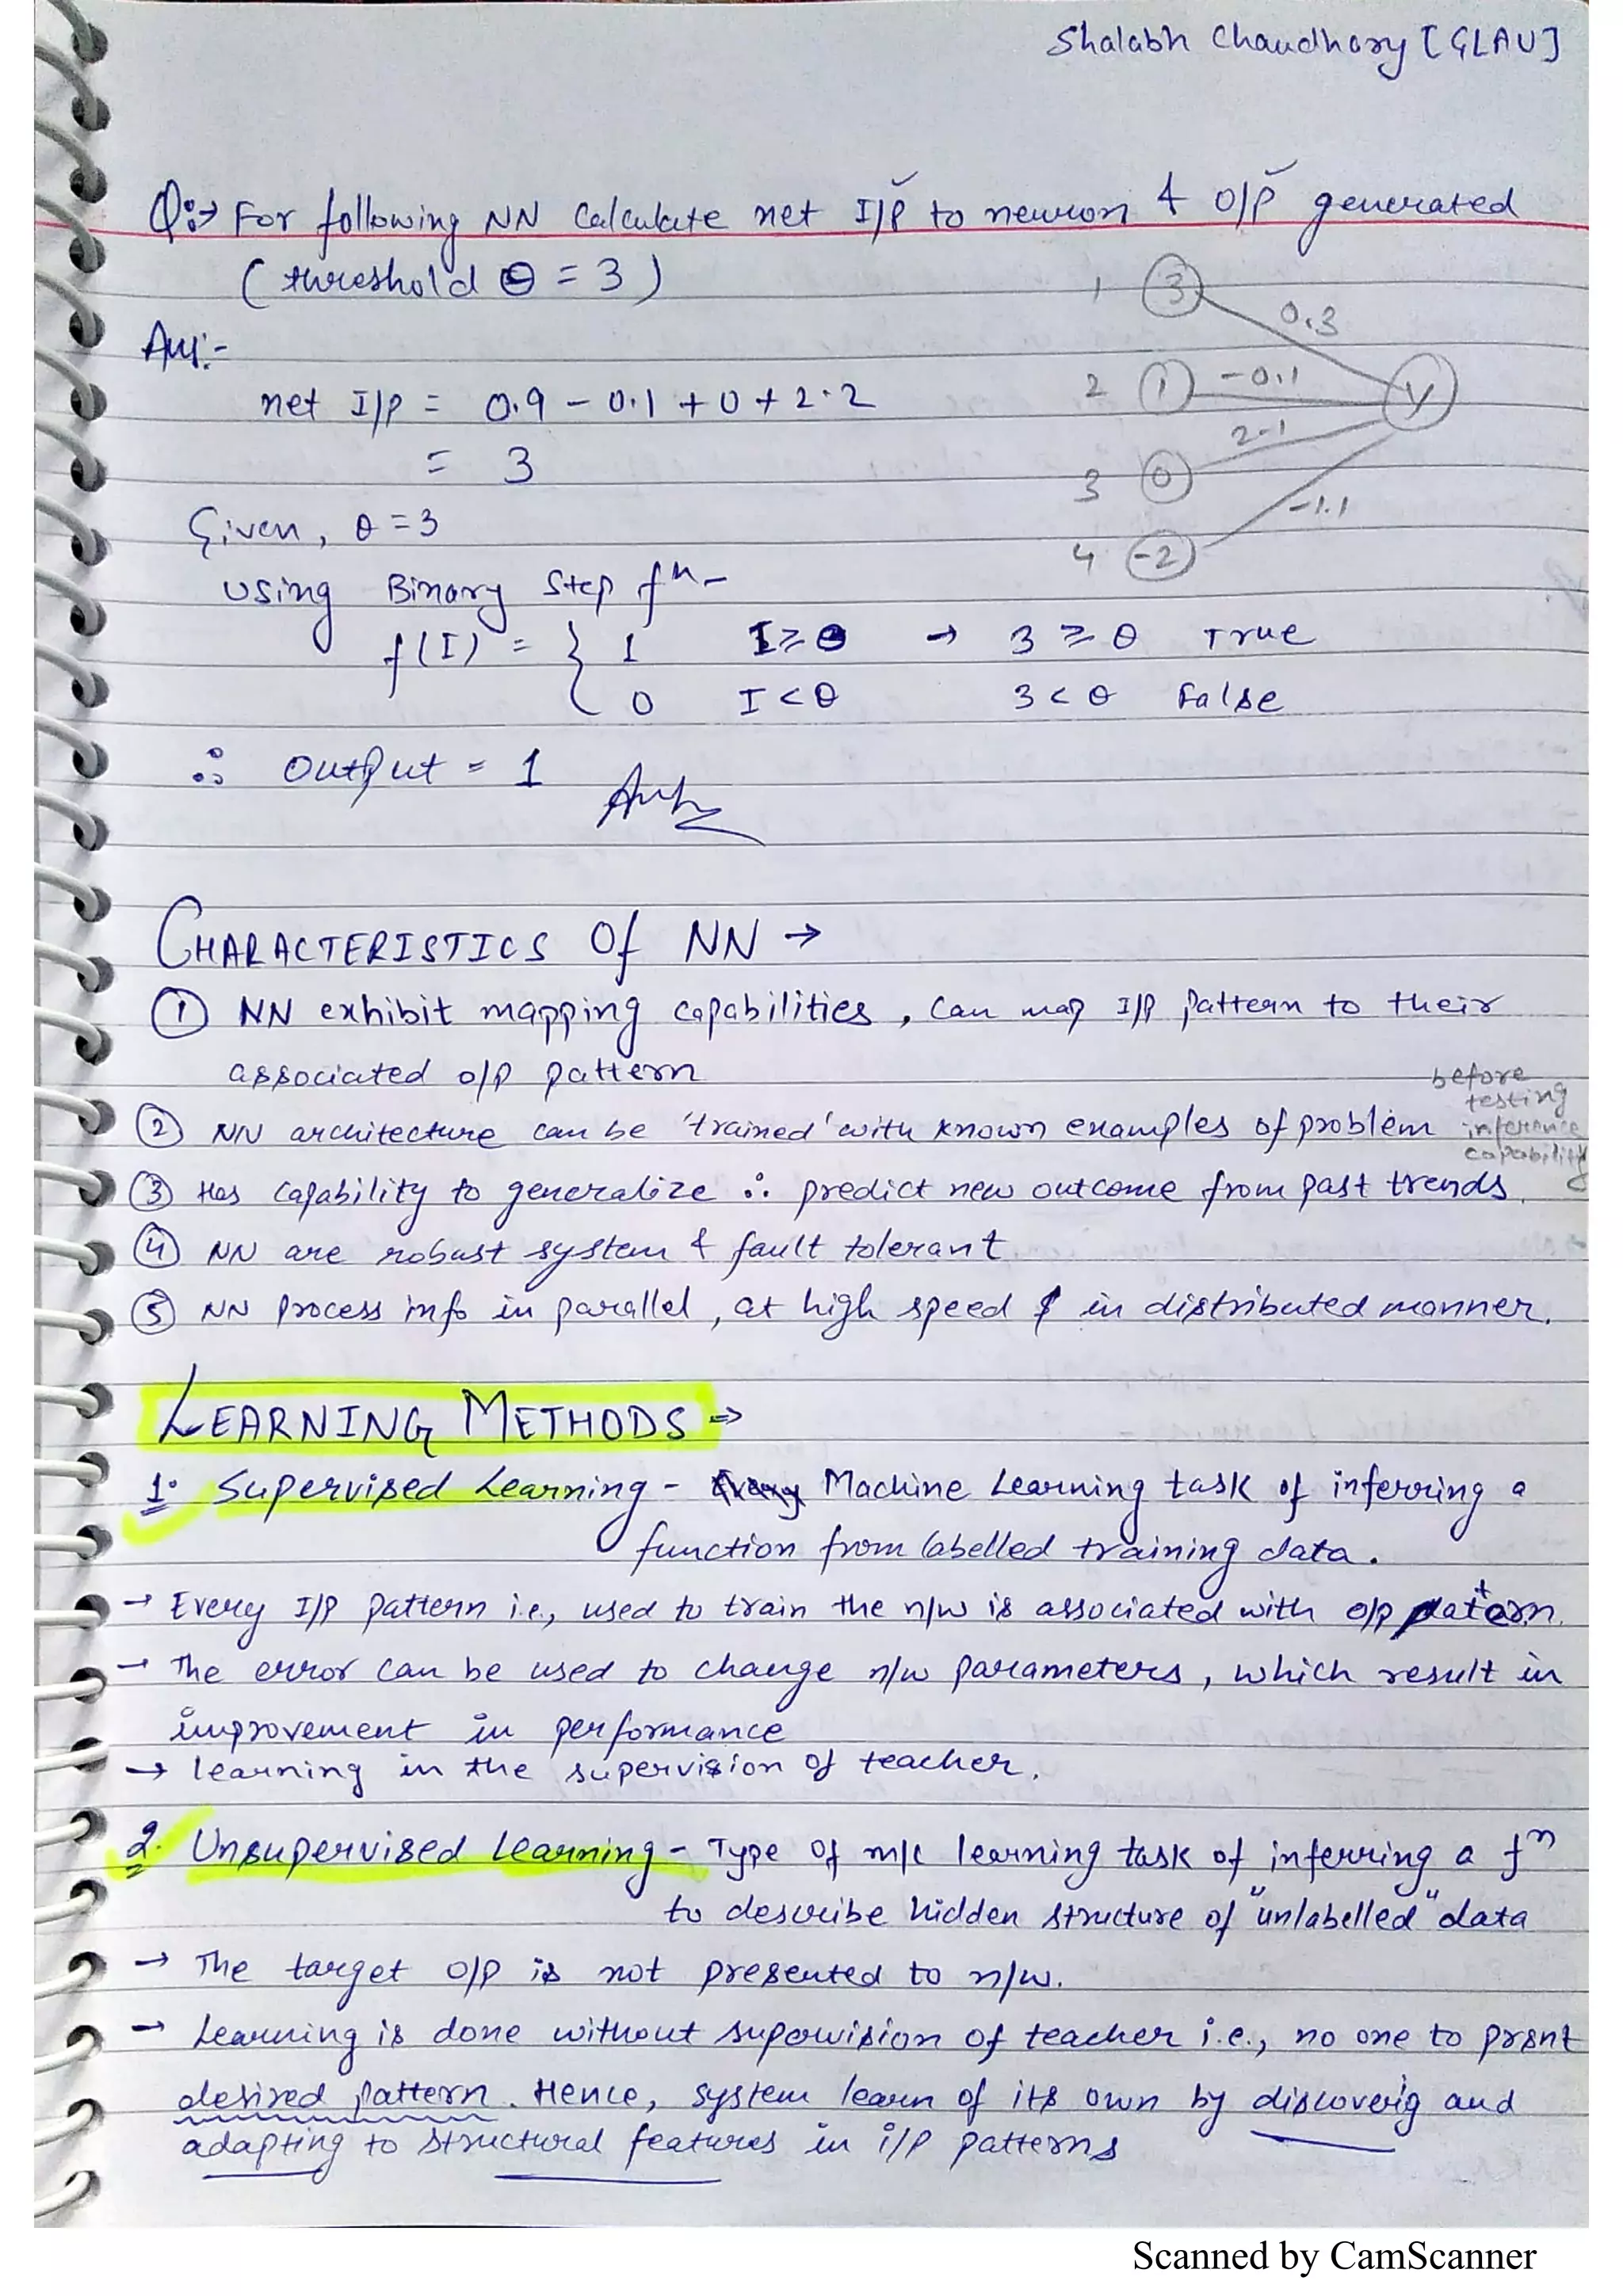 Shalabh Chaudhary [GLAU]
Q:→ For following NN Calculate net I/P to neuron & O/P generated
(threshold θ = 3)
1 3 0.3
Ans:-
net I/P = 0.9 - 0.1 + 0 + 2.2
2 1 -0.1 Y
= 3
2.1
3 0
Given, θ = 3
-1.1
4 -2
using Binary Step fⁿ-
f(I) = { 1 I ≥ θ → 3 ≥ θ True
0 I < θ 3 < θ False
∴ Output = 1 Ans
CHARACTERISTICS Of NN →
① NN exhibit mapping capabilities, can map I/P pattern to their
associated o/p pattern
before
testing
② NN architecture can be 'trained' with known examples of problem inference
capability
③ Has capability to generalize ∴ predict new outcome from past trends.
④ NN are robust system & fault tolerant
⑤ NN process info in parallel, at high speed & in distributed manner.
LEARNING METHODS ⇒
1. Supervised Learning - Machine Learning task of inferring a
function from labelled training data.
→ Every I/P pattern i.e., used to train the n/w is associated with o/p pattern.
→ The error can be used to change n/w parameters, which result in
improvement in performance
→ learning in the supervision of teacher.
2. Unsupervised Learning - Type of m/c learning task of inferring a fⁿ
to describe hidden structure of "unlabelled" data
→ The target o/p is not presented to n/w.
→ Learning is done without supervision of teacher i.e., no one to prsnt
desired pattern. Hence, system learn of its own by discoverig and
adapting to structural features in i/p patterns
Scanned by CamScanner